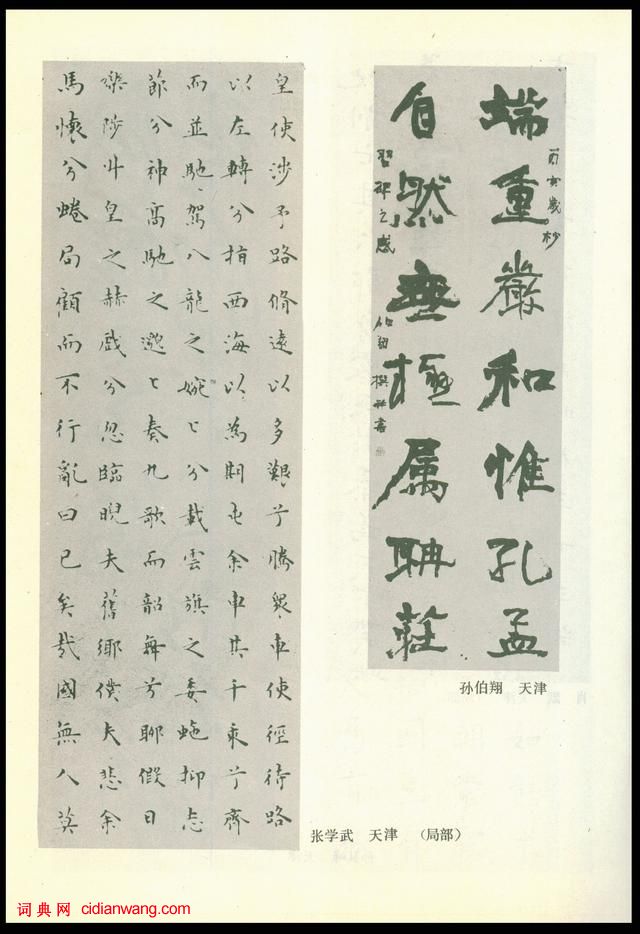 端重嚴和惟孔孟
丙寅歲杪
自然無極属聃莊
習碑之感
伯翔撰并書
孙伯翔 天津
皇使涉予路脩遠以多艱兮騰眾車使徑待路
以左轉兮指西海以為期屯余車其千乘兮齊
而並馳駕八龍之婉々兮載雲旗之委蛇抑志
節兮神高馳之邈々奏九歌而韶舞兮聊假日
樂陟升皇之赫戲兮忽臨睨夫舊鄉僕夫悲余
馬懷兮蜷局顧而不行亂曰已矣哉國無人莫
张学武 天津 (局部)
词典网 cidianwang.com